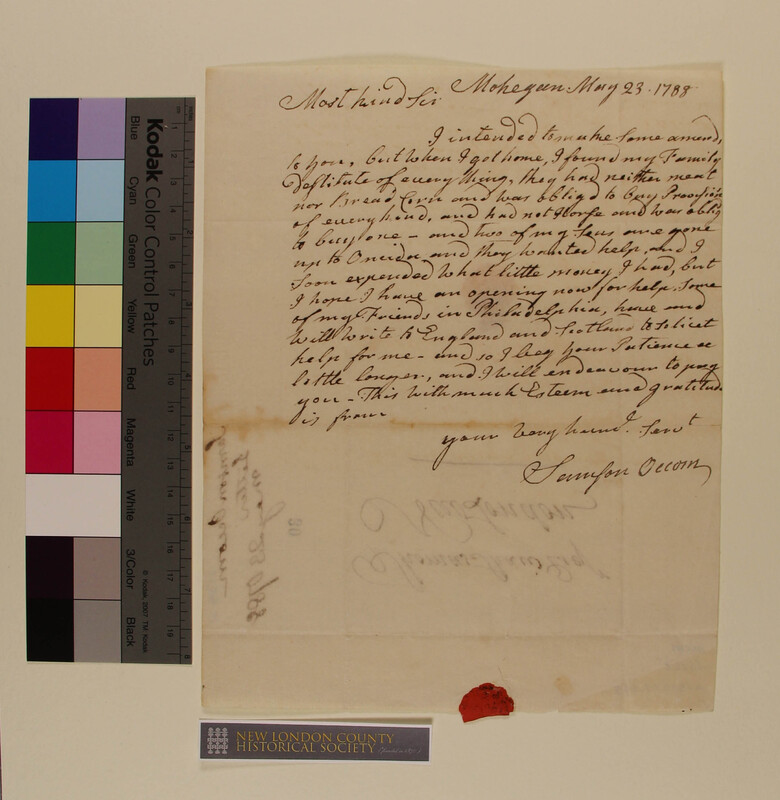 Most kind Sir Mohegan May 23. 1788
I intended to make Some amend,
to you, but when I got home, I found my Family
Destitute of every thing, they had neither meat
nor Bread, Corn and was obligd to buy Provision
of every kind, and had not Horse and was oblig
to buy one – and two of my Sons are gone
up to Oneida and they wanted help, and I
Soon expended what little money I had, but
I hope I have an opening now for help. Some
of my Friends in Philadelphia, have and
will write to England and Scotland to Solicit
help for me – and so I beg your Patience a
little longer, and I will endeavour to pay
you – This with much Esteem and gratitude
is from
your very humbl. Servt
Samson Occom
New London
Thomas Esqr
Samson Occom
Letter
May 23d 1788
30
Kodak Color Control Patches
Blue
Cyan
Green
Yellow
Red
Magenta
White
3/Color
Black
© Kodak, 2007 TM: Kodak
1 2 3 4 5 6 7 8 9 10 11 12 13 14 15 16 17 18 19
NEW LONDON COUNTY
HISTORICAL SOCIETY